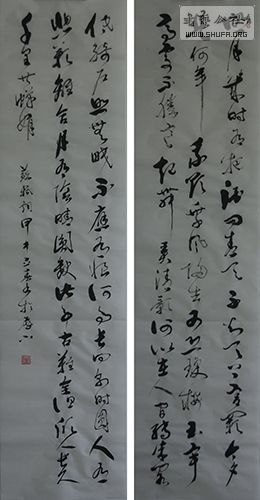 明月幾時有把酒問青天不知天上宮闕今夕
是何年我欲乘風歸去又恐瓊樓玉宇
高處不勝寒起舞弄清影何似在人間轉朱閣
低綺戶照無眠不應有恨何事長向別時圓人有
悲歡離合月有陰晴圓缺此事古難全但願人長久
千里共嬋娟
蘇軾詞甲午
WWW.SHUFA.ORG